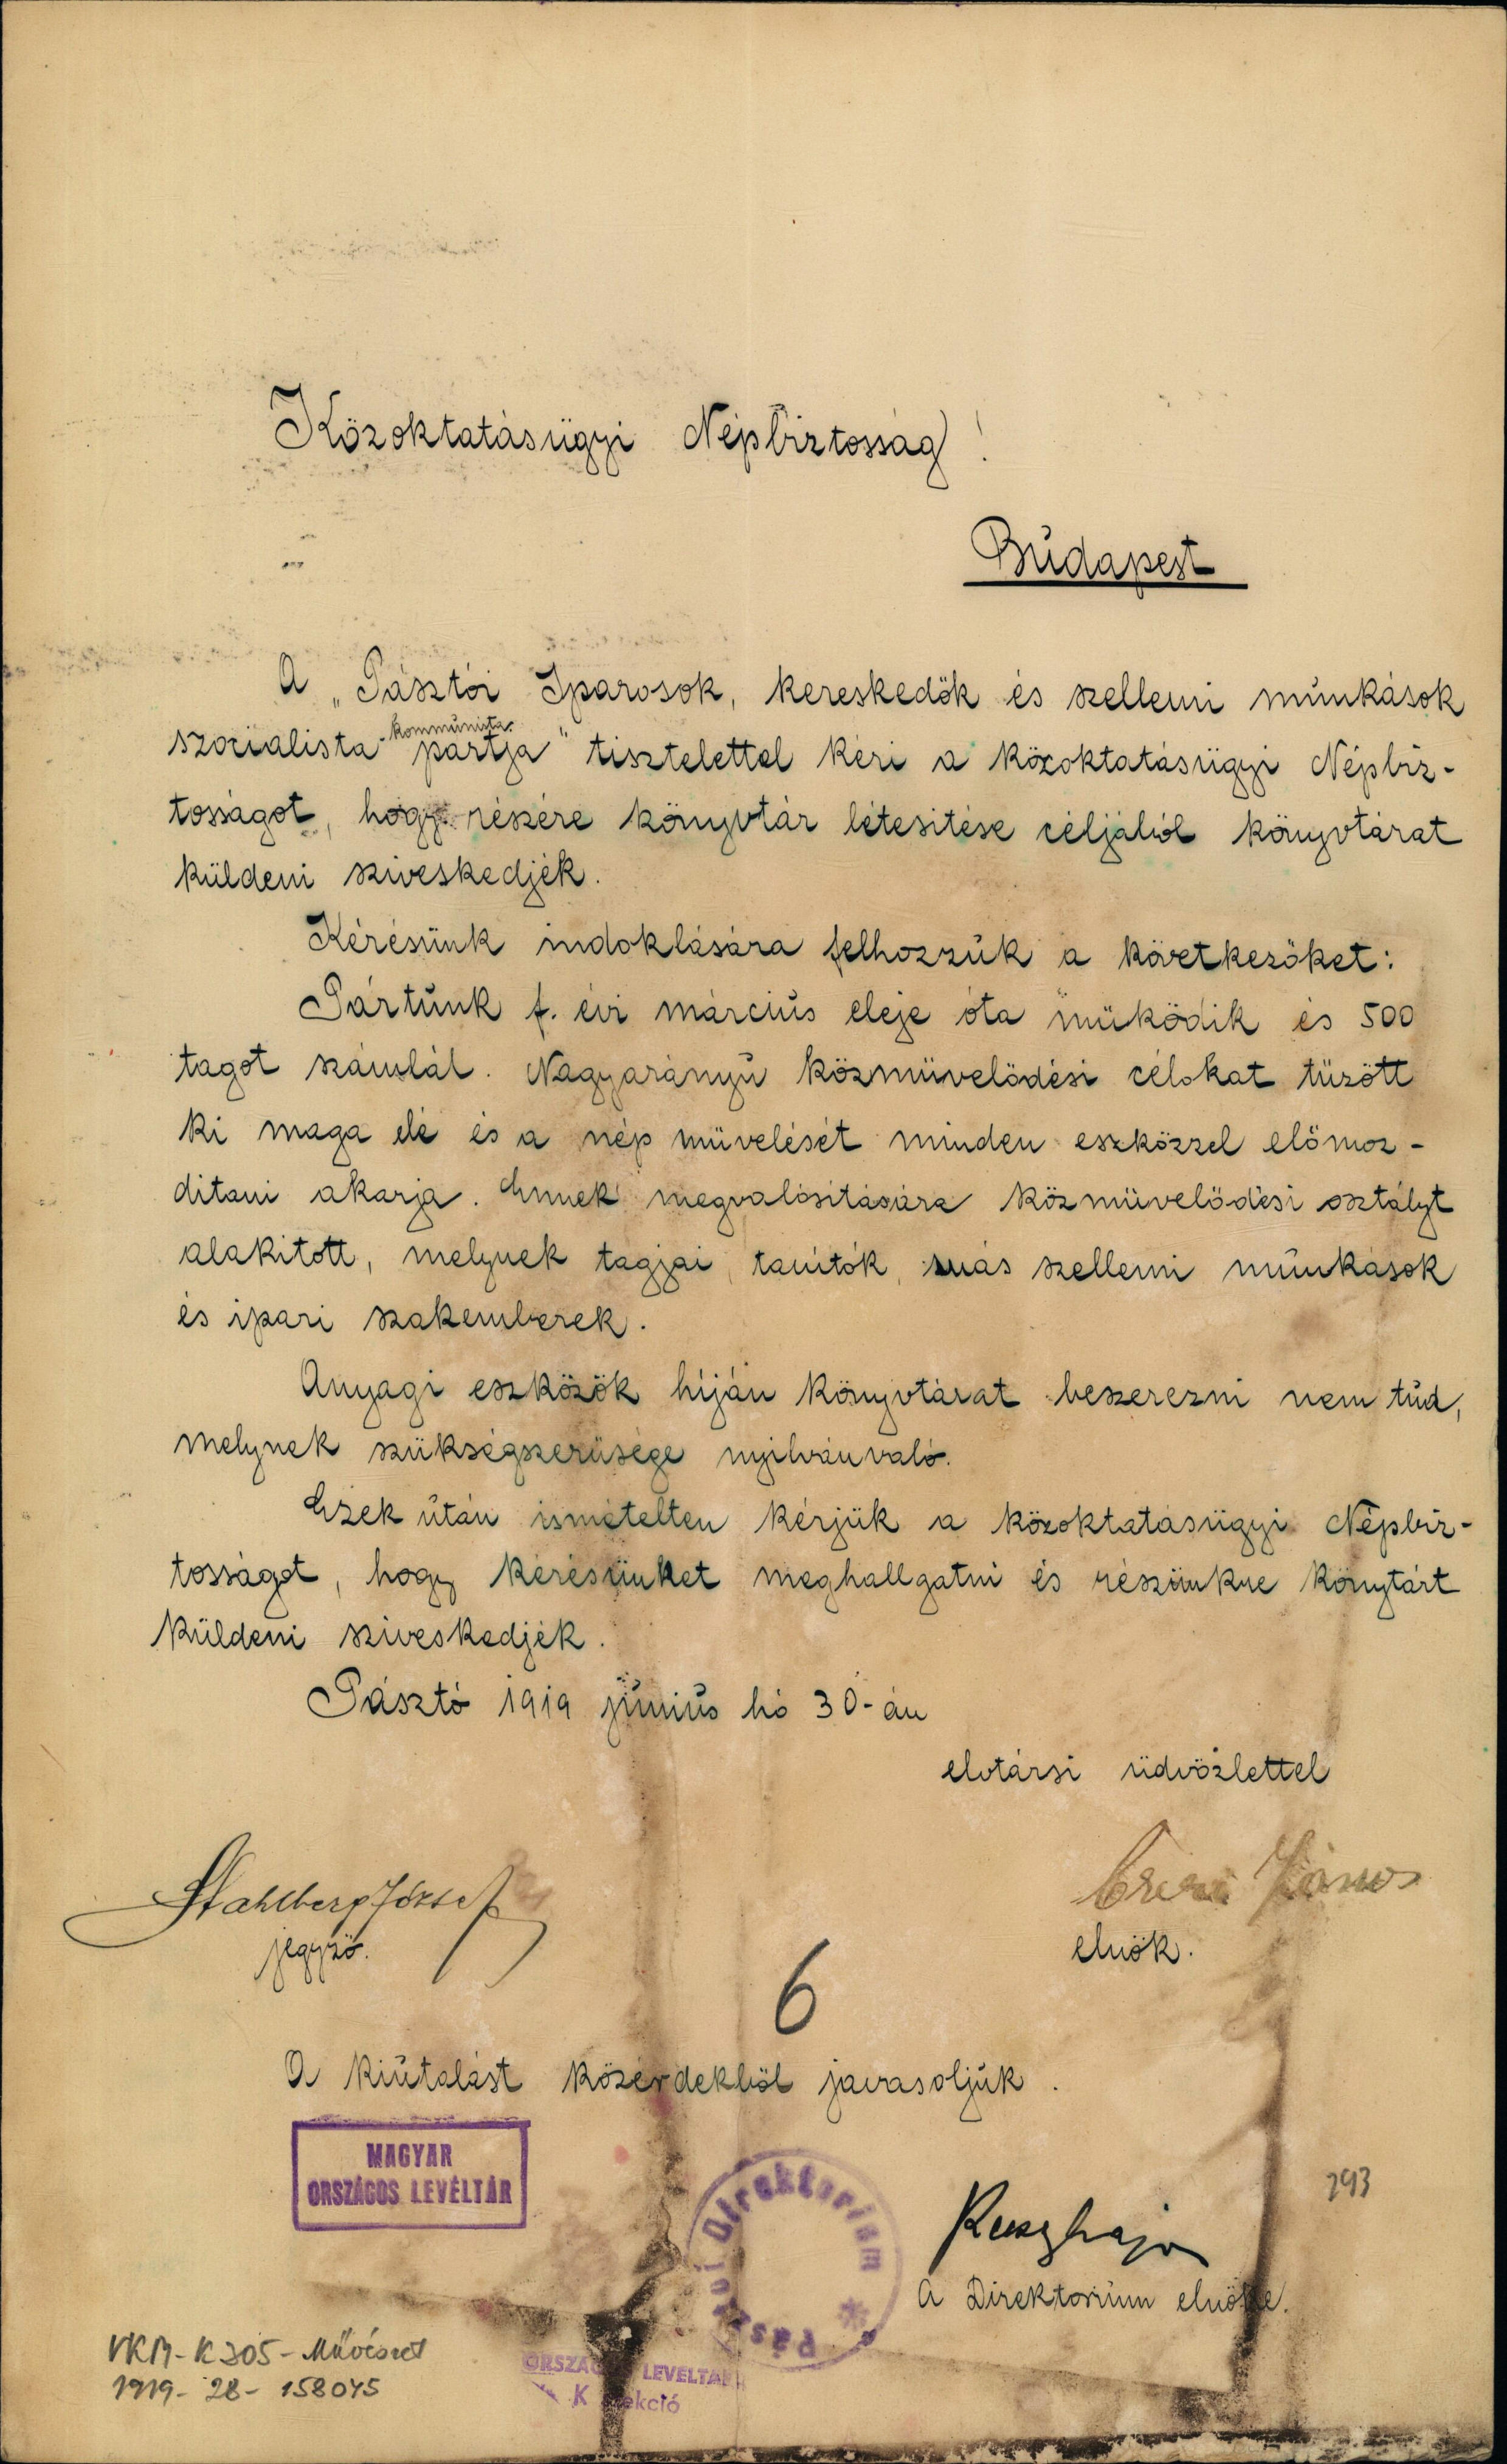 Közoktatásügyi Népbiztosság!
Budapest
A „Pásztói Iparosok, kereskedők és szellemi munkások
szocialista-kommunista pártja" tisztelettel kéri a közoktatásügyi Népbiz-
tosságot, hogy részére könyvtár létesitése céljából könyvtárat
küldeni sziveskedjék.
Kérésünk indoklására felhozzuk a következőket:
Pártunk f. évi március eleje óta müködik és 500
tagot számlál. Nagyarányu közmüvelödési célokat tüzött
ki maga elé és a nép müvelését minden eszközzel elömoz-
ditani akarja. Ennek megvalósitására közmüvelödési osztályt
alakitott, melynek tagjai, tanítók, más szellemi munkások
és ipari szakemberek.
Anyagi eszközök híján könyvtárat beszerezni nem tud,
melynek szükségszerüsége nyilvánvaló.
Ezek után ismételten kérjük a közoktatásügyi Népbiz-
tosságot, hogy kérésünket meghallgatni és részünkre könytárt
küldeni sziveskedjék.
Pásztó 1919 június hó 30-án
elvtársi üdvözlettel
Stahlberg József
János
jegyző.
elnök.
6
A kiutalást közérdekböl javasoljuk.
MAGYAR
ORSZÁGOS LEVÉLTÁR
Pásztói Direktorium *
293
A Direktorium elnöke.
VKM-K305-Művészet
1919-28-158045
ORSZÁGOS LEVÉLTÁR
K szekció